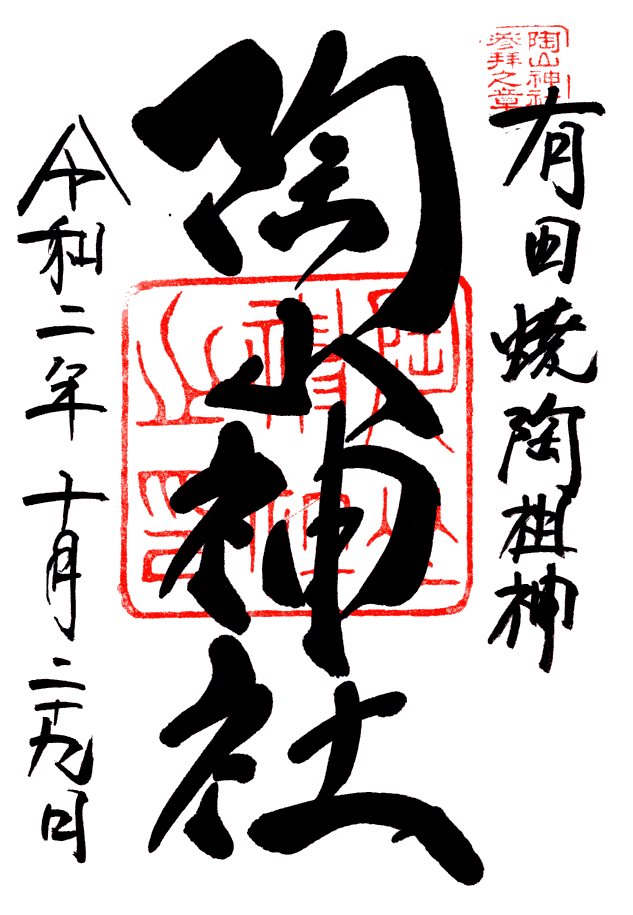 陶山神社
参拝之章
有田焼陶祖神
陶山神社
令和二年十月二十九日